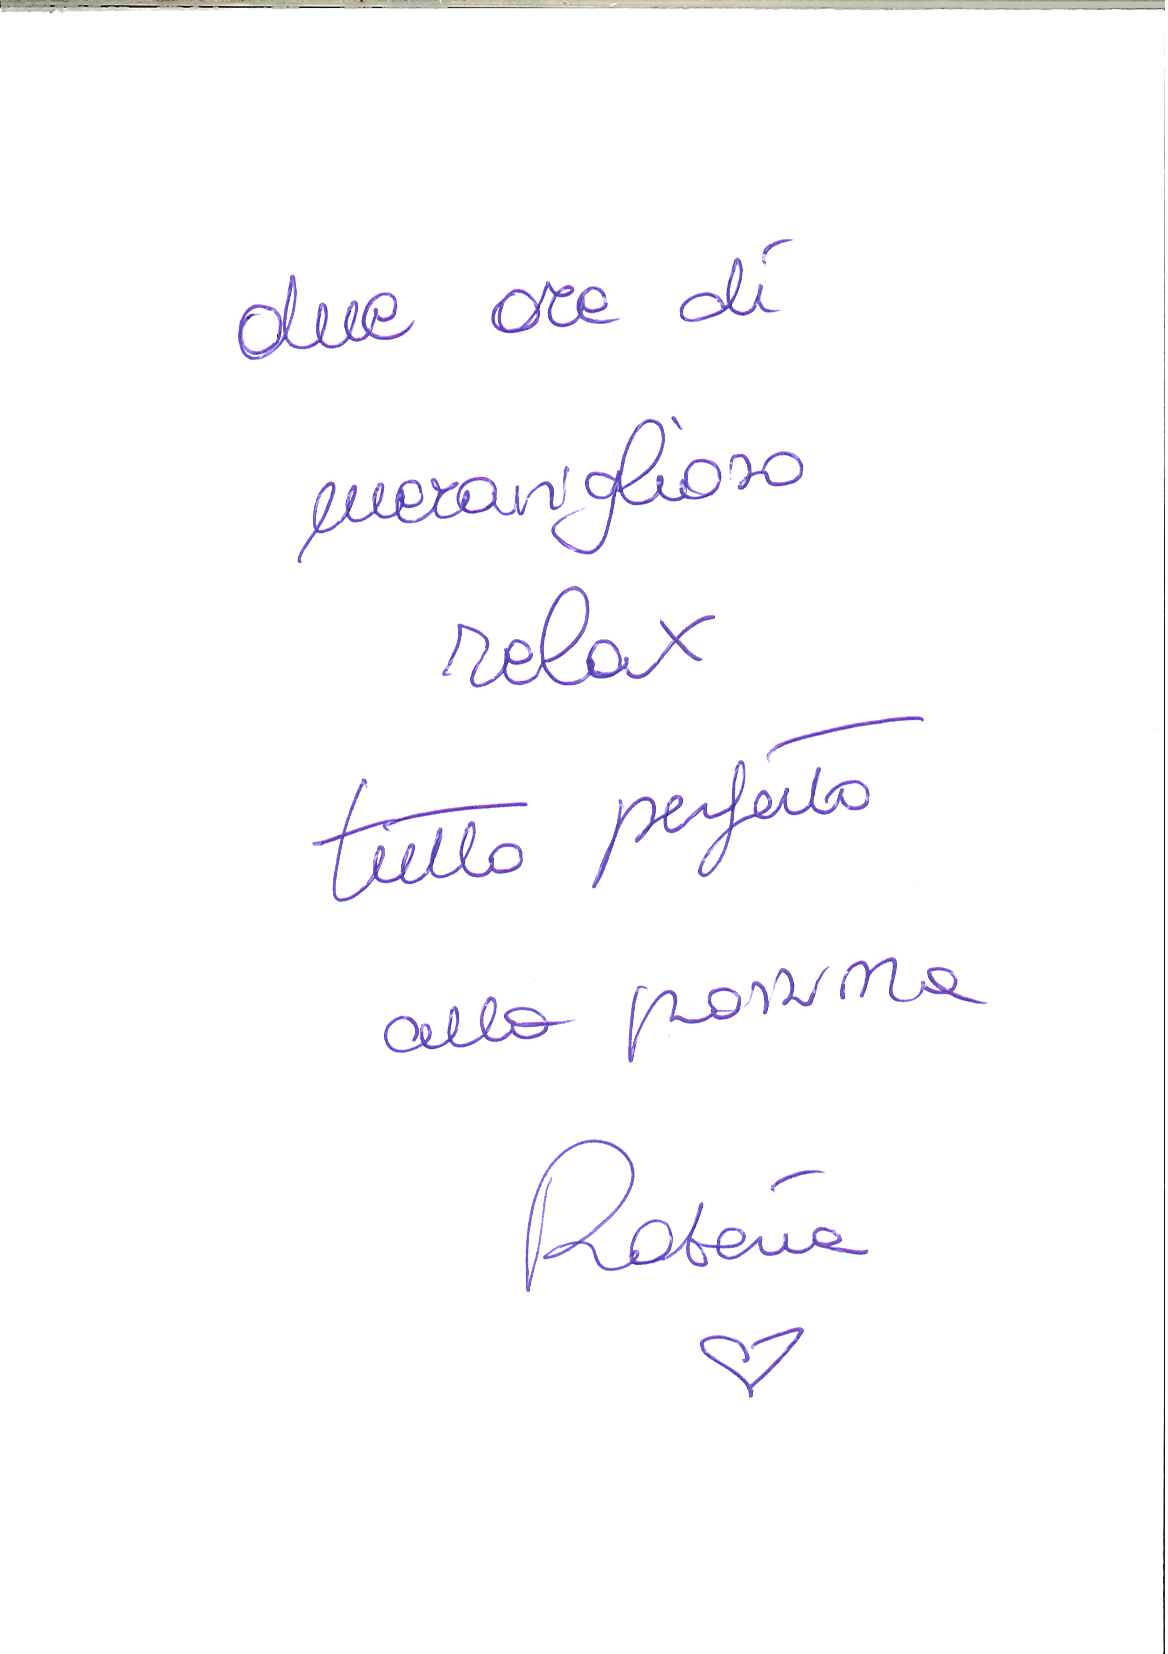 due ore di
meraviglioso
relax
tutto perfetto
alla prossima
Roberta